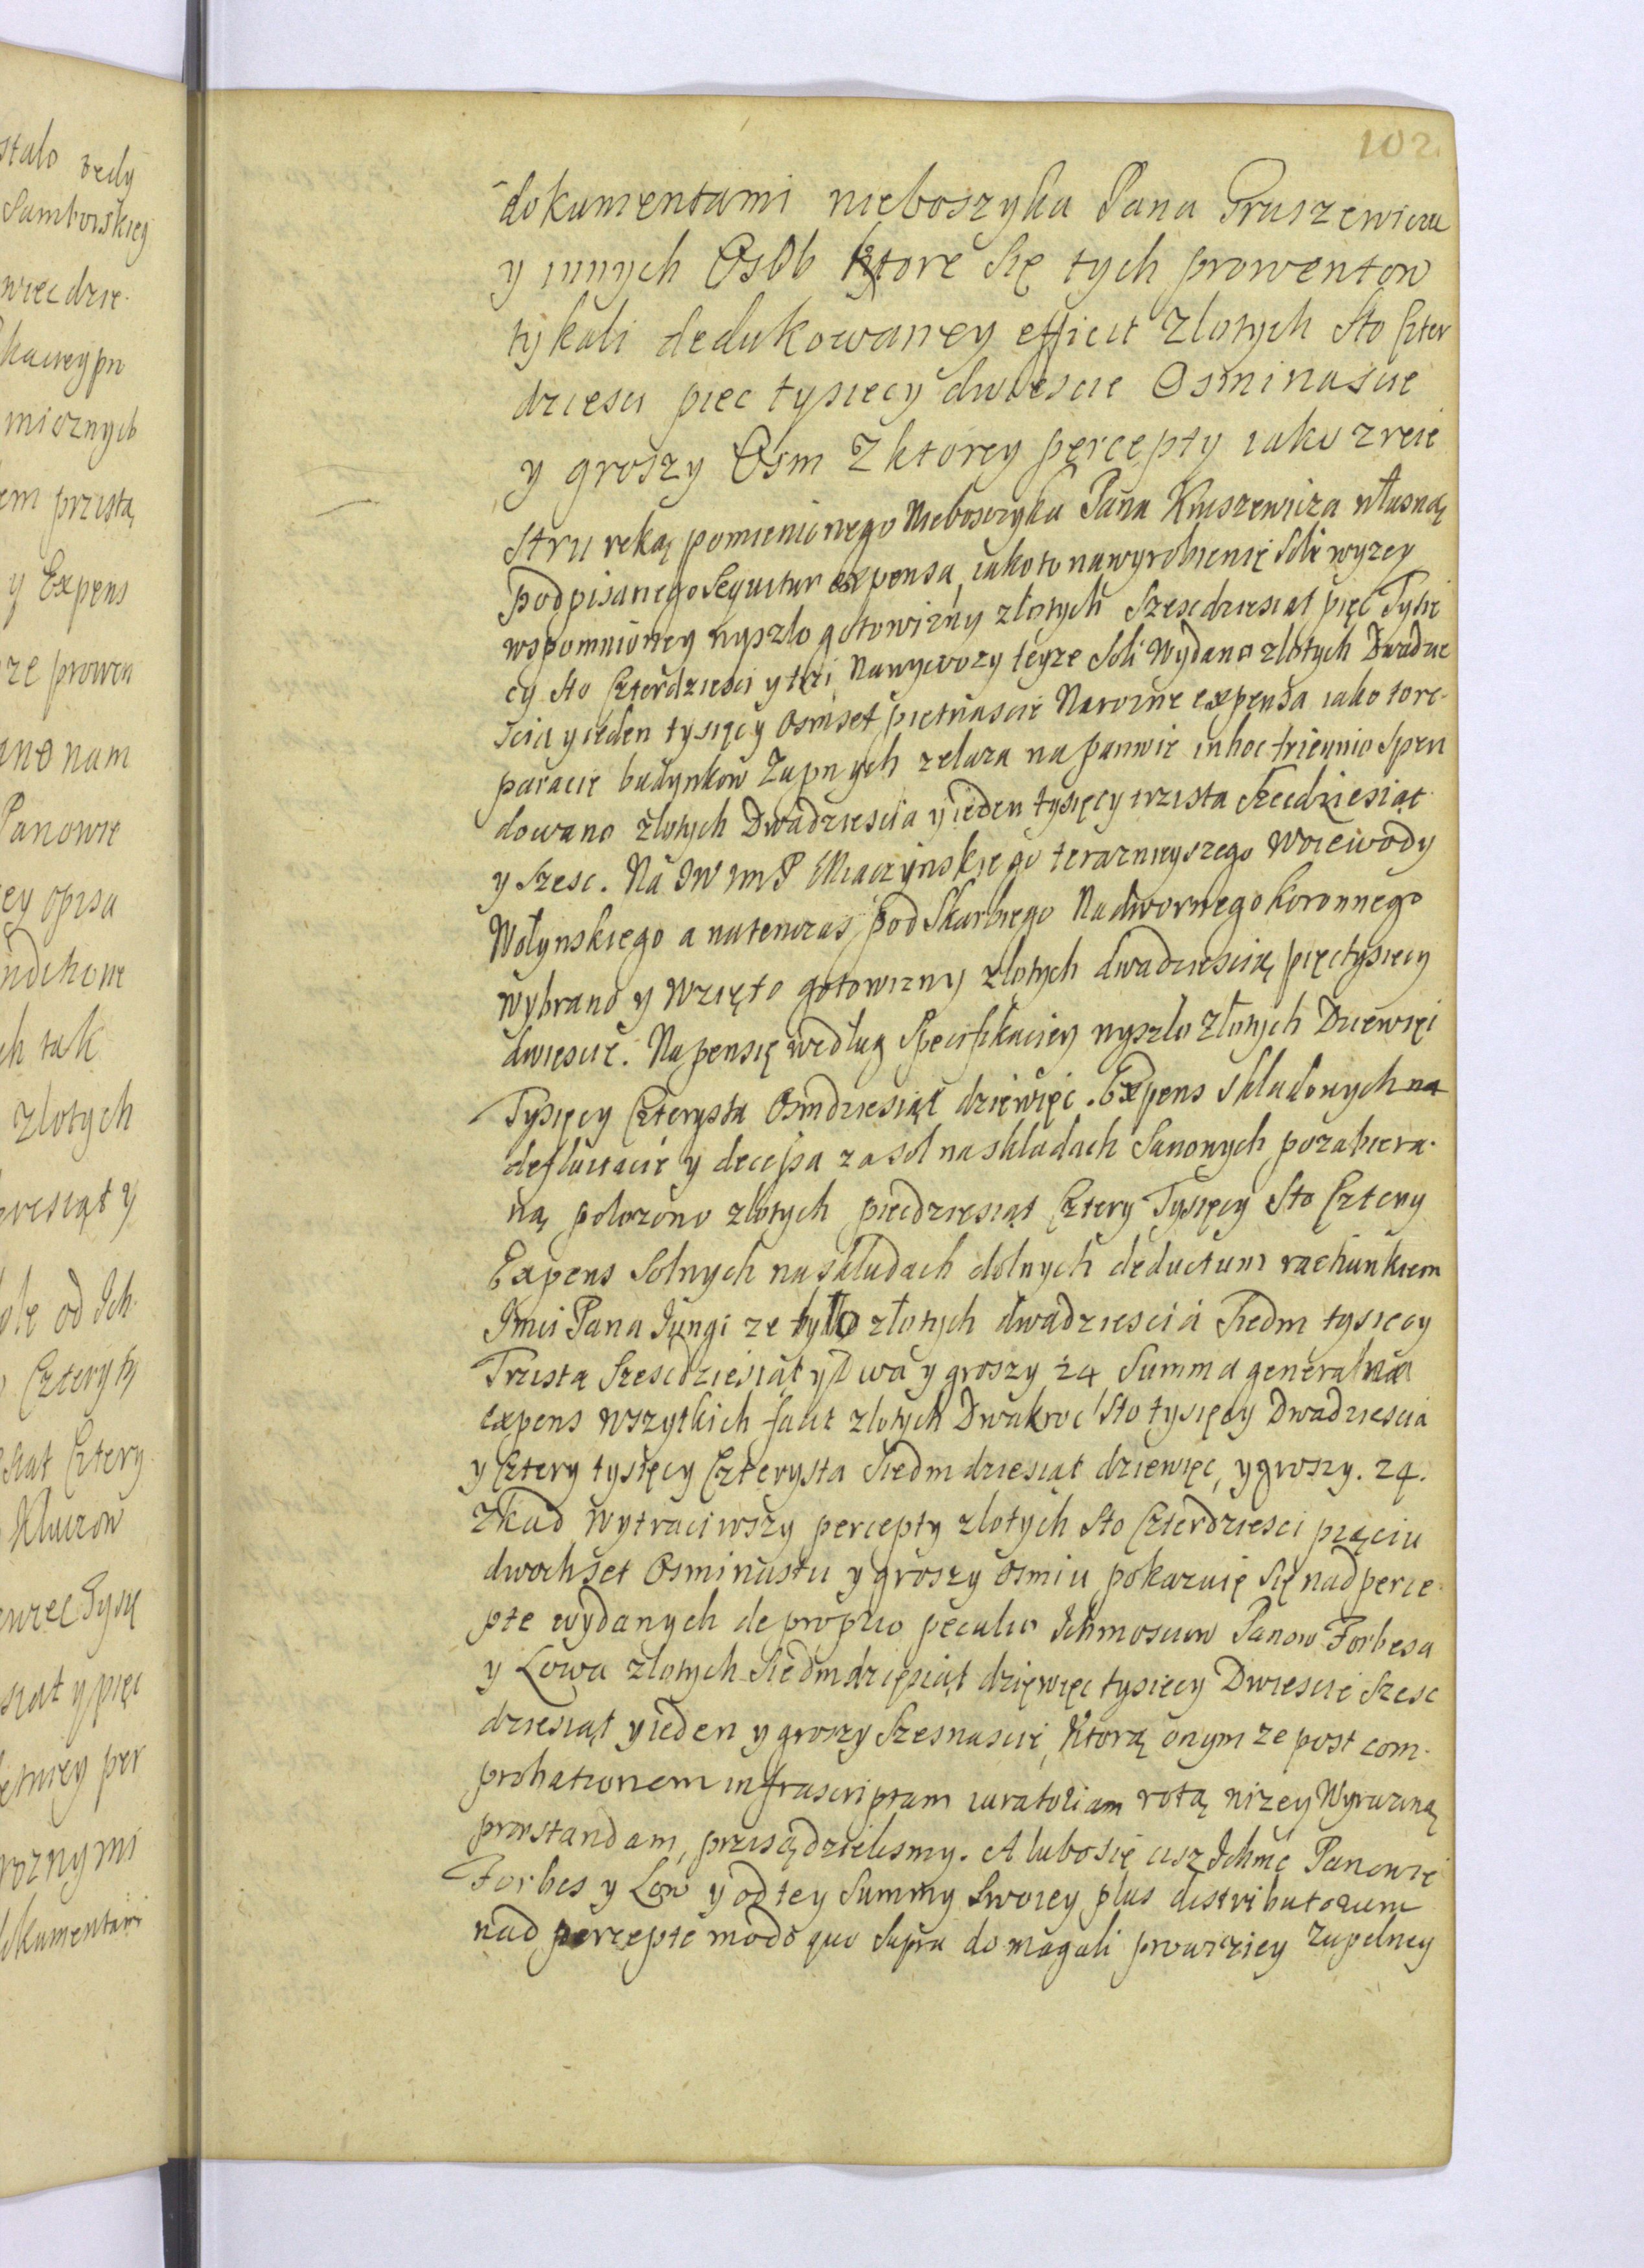 102.
dokumentami nieboszyka Pana Gruszewicza
y innych Osob ktore Się tych prowentow
tykali dedukowaney efficit Zlotych Sto Czter
dziesci piec tysiecy dwiescie Osminascie
y groszy Osm Z ktorey percepty iako z reie
Stru reką pomienionego Nieboszczyka Pana Kruszewicza własną
podpisanego Sequitur expensa, iako to na wyrobienie Soli wyzey
wspomnioney wyszlo gotowizny złotych Szescdziesiat pięc Tysie
cy Sto Czterdziesci y trzi, Na wywozy teyze Soli Wydano zlotych Dwadzie
scia y ieden tysięcy Osmset piętnascie Na rozne expensa iako to re-
paracie budynkow Zupnych zelaza na panwie in hoc triennio Spen
dowano zlotych Dwadziescia y ieden tysięcy trzista Szecdziesiąt
y Szesc. Na JW JmP Miaczynskiego teraznieyszego Woiewody
Wołynskiego a natenczas pod Skarbiego Nadwornego Koronnego
wybrano y Wzięto gotowizny zlotych dwadziescia pięc tysiecy
dwiescie. Na pensię według Specifikaciey wyszlo złotych Dziewięc
Tysięcy Czterysta Osmdziesiąt dziewięc. Expens Skladowych na
defluitacie y decessa za sol na skladach Sanowych pozabiera-
ną polozono zlotych piecdziesiąt Cztery Tysięcy Sto Cztery
Expens Solnych na skladach dolnych deductum rachunkiem
Jmci Pana Jungi ze bylo złotych dwadziescia Siedm tysiecy
Trzista Szescdziesiąt y Dwa y groszy 24 Summa generalna
expens wszytkich facit zlotych Dwakroc Sto tysięcy Dwadziescia
y Cztery tysięcy Czterysta Siedmdziesiąt dziewięc, y groszy. 24.
Zkad wytraciwszy percepty zlotych Sto Czterdziesci piąciu
dwochset Osminastu y groszy osmiu pokazuię Się nad perce-
pte wydanych de proprio peculio Ichmosciow Panow Forbesa
y Lowa zlotych Siedmdziesiąt dziewięc tysiecy Dwiescie Szesc
dziesiąt y ieden y groszy Szesnascie, Ktorą onym ze post com-
probationem infrascriptam iuratoriam rotą nizey Wyrazną
prœstandam, przisądzielismy. A lubo się cisz Ichmc Panowie
Forbes y Low y od tey Summy Swoiey plus distributorum
nad percepte modo quo Supra do magali prowiziey Zupelney